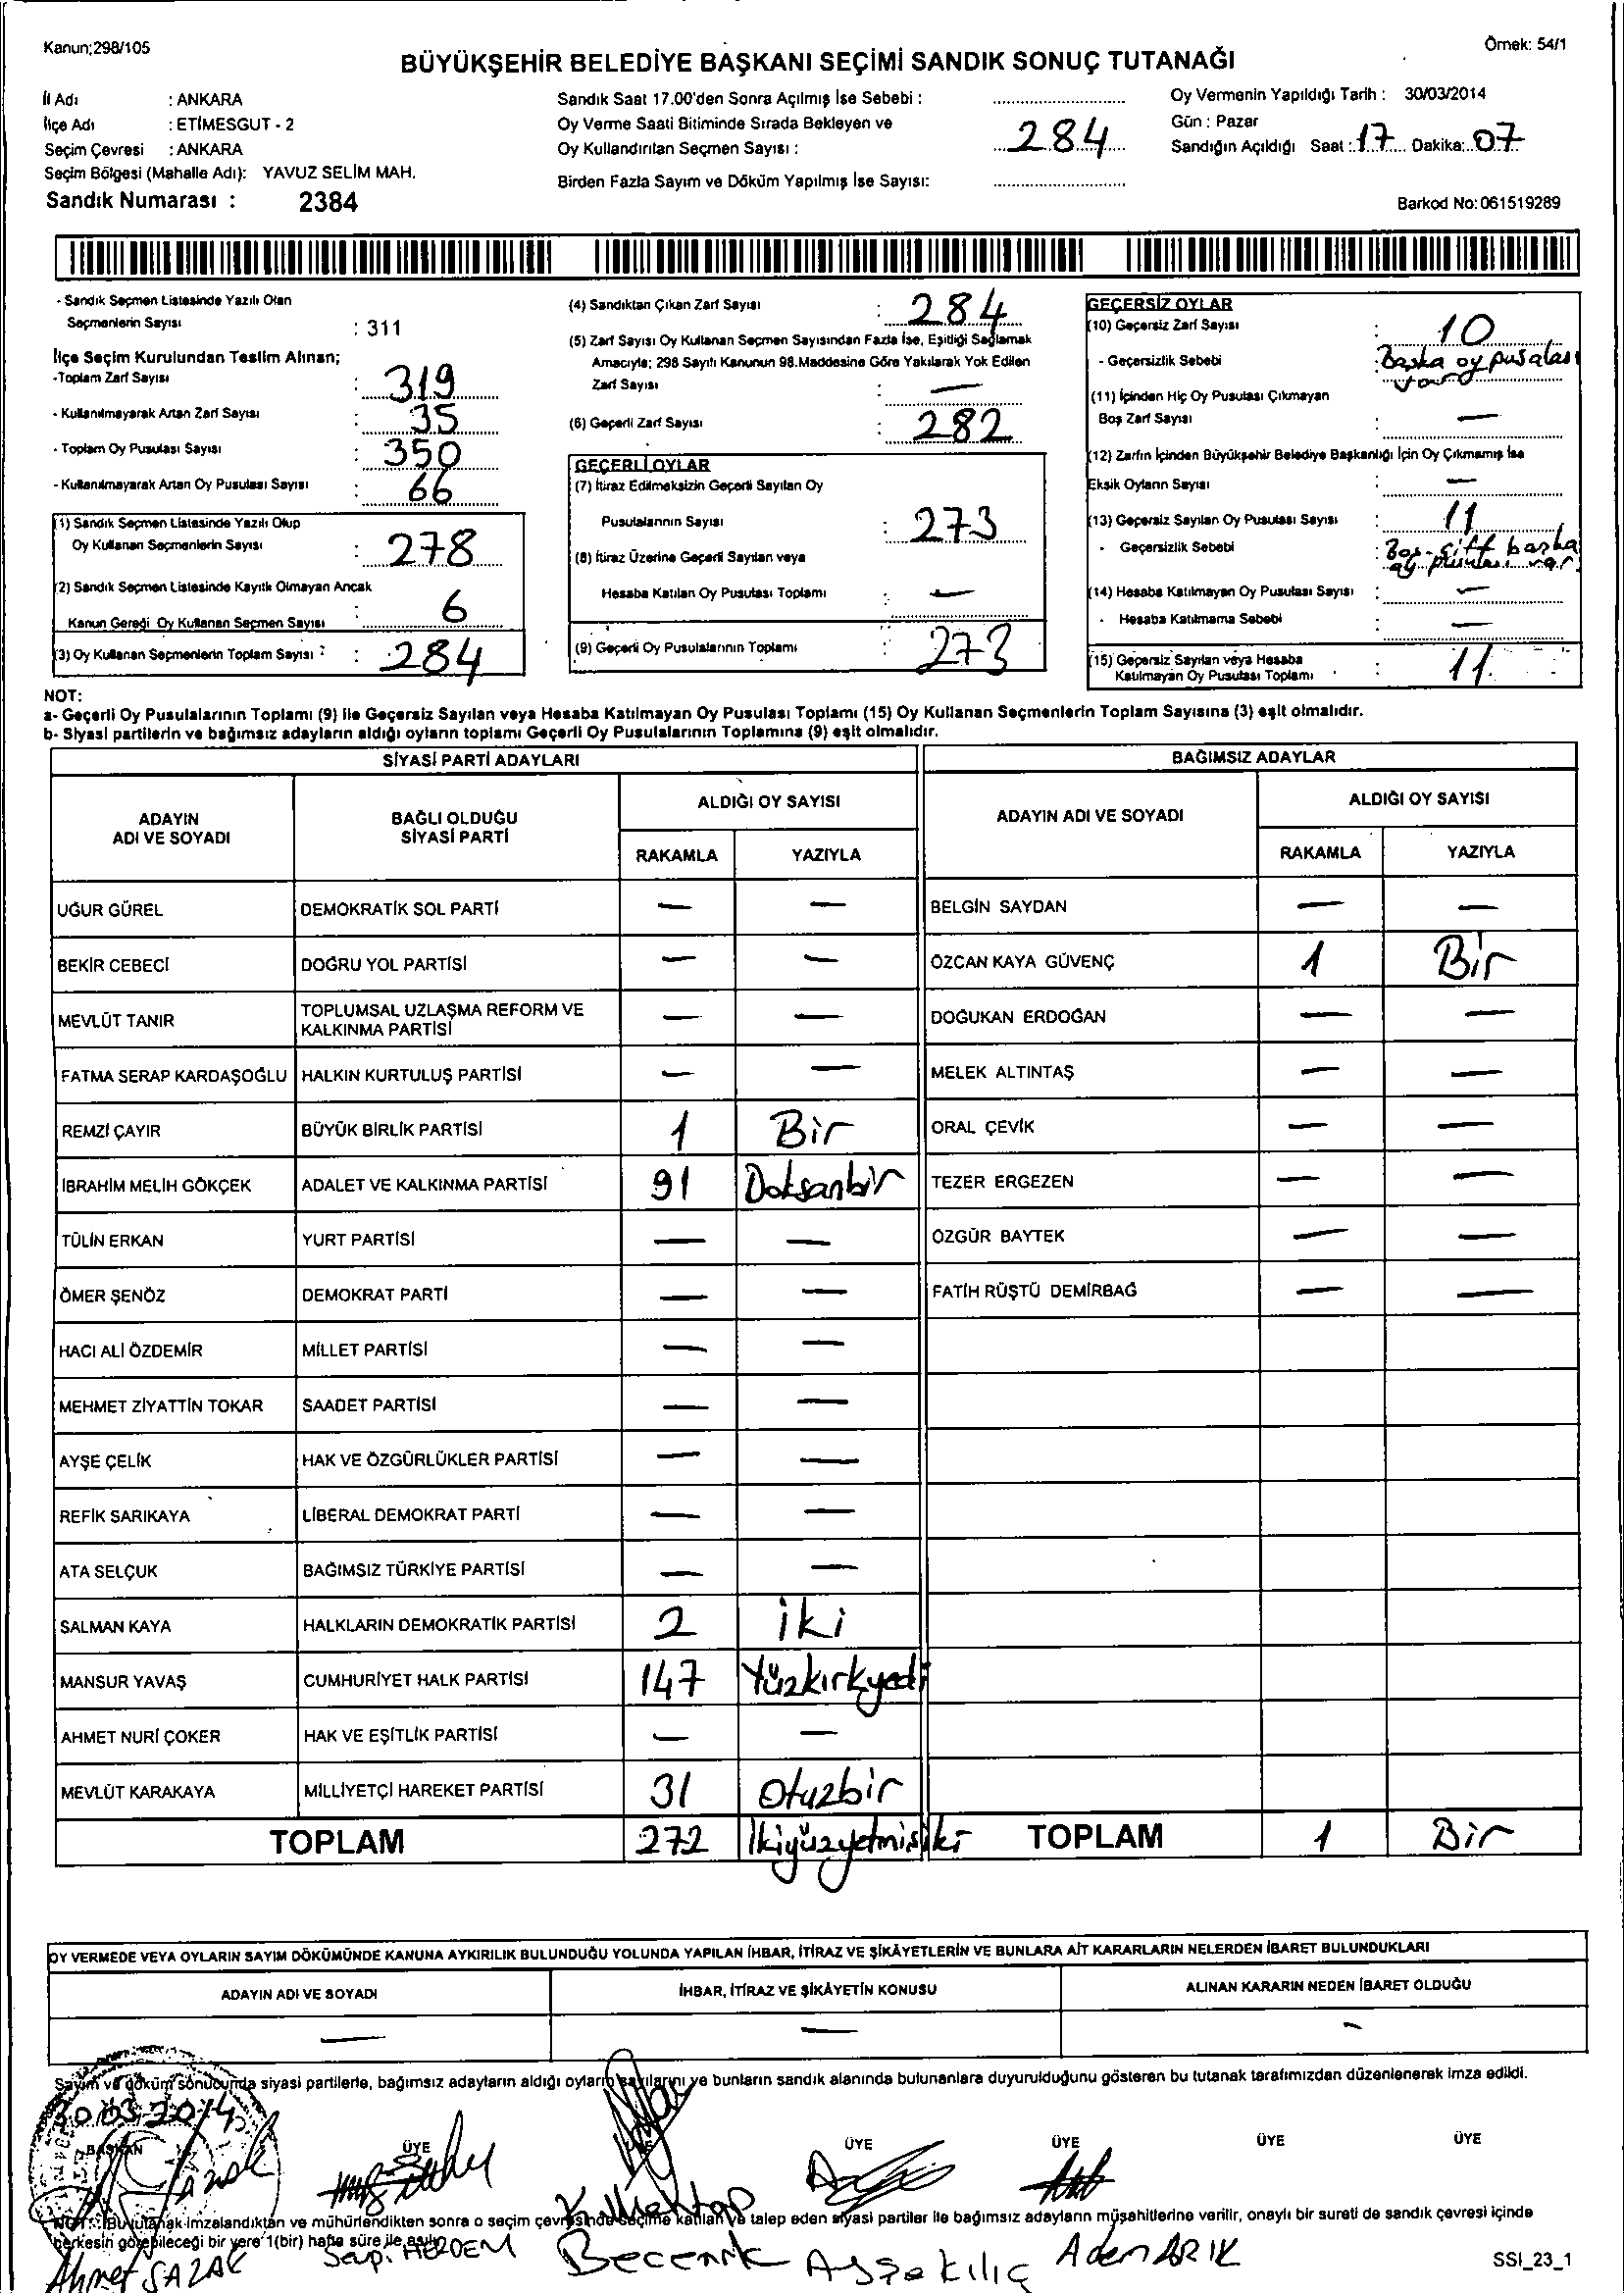 Kanun;298/105
Örnek: 54/1
BÜYÜKŞEHİR BELEDİYE BAŞKANI SEÇİMİ SANDIK SONUÇ TUTANAĞI
İl Adı : ANKARA
İlçe Adı : ETİMESGUT - 2
Seçim Çevresi : ANKARA
Seçim Bölgesi (Mahalle Adı): YAVUZ SELİM MAH.
Sandık Numarası : 2384
Sandık Saat 17.00'den Sonra Açılmış İse Sebebi :
Oy Verme Saati Bitiminde Sırada Bekleyen ve
Oy Kullandırılan Seçmen Sayısı : 284
Birden Fazla Sayım ve Döküm Yapılmış İse Sayısı:
Oy Vermenin Yapıldığı Tarih : 30/03/2014
Gün : Pazar
Sandığın Açıldığı Saat : 17 Dakika: 07
Barkod No: 061519289
- Sandık Seçmen Listesinde Yazılı Olan
Seçmenlerin Sayısı : 311
İlçe Seçim Kurulundan Teslim Alınan;
-Toplam Zarf Sayısı : 319
- Kullanılmayarak Artan Zarf Sayısı : 35
- Toplam Oy Pusulası Sayısı : 350
- Kullanılmayarak Artan Oy Pusulası Sayısı : 66
(1) Sandık Seçmen Listesinde Yazılı Olup
Oy Kullanan Seçmenlerin Sayısı : 278
(2) Sandık Seçmen Listesinde Kayıtlı Olmayan Ancak
Kanun Gereği Oy Kullanan Seçmen Sayısı : 6
(3) Oy Kullanan Seçmenlerin Toplam Sayısı : 284
(4) Sandıktan Çıkan Zarf Sayısı : 284
(5) Zarf Sayısı Oy Kullanan Seçmen Sayısından Fazla İse, Eşitliği Sağlamak
Amacıyla; 298 Sayılı Kanunun 98.Maddesine Göre Yakılarak Yok Edilen
Zarf Sayısı : —
(6) Geçerli Zarf Sayısı : 282
GEÇERLİ OYLAR
(7) İtiraz Edilmeksizin Geçerli Sayılan Oy
Pusulalarının Sayısı : 273
(8) İtiraz Üzerine Geçerli Sayılan veya
Hesaba Katılan Oy Pusulası Toplamı : —
(9) Geçerli Oy Pusulalarının Toplamı : 273
GEÇERSİZ OYLAR
(10) Geçersiz Zarf Sayısı : 10
- Geçersizlik Sebebi : Başka oy pusulası
var
(11) İçinden Hiç Oy Pusulası Çıkmayan
Boş Zarf Sayısı : —
(12) Zarfın İçinden Büyükşehir Belediye Başkanlığı İçin Oy Çıkmamış İse
Eksik Oyların Sayısı : —
(13) Geçersiz Sayılan Oy Pusulası Sayısı : 11
- Geçersizlik Sebebi : Boş-çift başka
oy var
(14) Hesaba Katılmayan Oy Pusulası Sayısı : —
- Hesaba Katılmama Sebebi : —
(15) Geçersiz Sayılan veya Hesaba
Katılmayan Oy Pusulası Toplamı : 11
NOT:
a- Geçerli Oy Pusulalarının Toplamı (9) ile Geçersiz Sayılan veya Hesaba Katılmayan Oy Pusulası Toplamı (15) Oy Kullanan Seçmenlerin Toplam Sayısına (3) eşit olmalıdır.
b- Siyasi partilerin ve bağımsız adayların aldığı oyların toplamı Geçerli Oy Pusulalarının Toplamına (9) eşit olmalıdır.
SİYASİ PARTİ ADAYLARI BAĞIMSIZ ADAYLAR
ADAYIN
ADI VE SOYADI
BAĞLI OLDUĞU
SİYASİ PARTİ
ALDIĞI OY SAYISI
RAKAMLA YAZIYLA
ADAYIN ADI VE SOYADI
ALDIĞI OY SAYISI
RAKAMLA YAZIYLA
UĞUR GÜREL DEMOKRATİK SOL PARTİ — — BELGİN SAYDAN — —
BEKİR CEBECİ DOĞRU YOL PARTİSİ — — ÖZCAN KAYA GÜVENÇ 1 Bir
MEVLÜT TANIR TOPLUMSAL UZLAŞMA REFORM VE
KALKINMA PARTİSİ — — DOĞUKAN ERDOĞAN — —
FATMA SERAP KARDAŞOĞLU HALKIN KURTULUŞ PARTİSİ — — MELEK ALTINTAŞ — —
REMZİ ÇAYIR BÜYÜK BİRLİK PARTİSİ 1 Bir ORAL ÇEVİK — —
İBRAHİM MELİH GÖKÇEK ADALET VE KALKINMA PARTİSİ 91 Doksanbir TEZER ERGEZEN — —
TÜLİN ERKAN YURT PARTİSİ — — ÖZGÜR BAYTEK — —
ÖMER ŞENÖZ DEMOKRAT PARTİ — — FATİH RÜŞTÜ DEMİRBAĞ — —
HACI ALİ ÖZDEMİR MİLLET PARTİSİ — —
MEHMET ZİYATTİN TOKAR SAADET PARTİSİ — —
AYŞE ÇELİK HAK VE ÖZGÜRLÜKLER PARTİSİ — —
REFİK SARIKAYA LİBERAL DEMOKRAT PARTİ — —
ATA SELÇUK BAĞIMSIZ TÜRKİYE PARTİSİ — —
SALMAN KAYA HALKLARIN DEMOKRATİK PARTİSİ 2 iki
MANSUR YAVAŞ CUMHURİYET HALK PARTİSİ 147 Yüzkırkyedi
AHMET NURİ ÇOKER HAK VE EŞİTLİK PARTİSİ — —
MEVLÜT KARAKAYA MİLLİYETÇİ HAREKET PARTİSİ 31 Otuzbir
TOPLAM 272 İkiyüzyetmişiki TOPLAM 1 Bir
OY VERMEDE VEYA OYLARIN SAYIM DÖKÜMÜNDE KANUNA AYKIRILIK BULUNDUĞU YOLUNDA YAPILAN İHBAR, İTİRAZ VE ŞİKÂYETLERİN VE BUNLARA AİT KARARLARIN NELERDEN İBARET BULUNDUKLARI
ADAYIN ADI VE SOYADI İHBAR, İTİRAZ VE ŞİKÂYETİN KONUSU ALINAN KARARIN NEDEN İBARET OLDUĞU
— — —
Sayım ve döküm sonucunda siyasi partilerle, bağımsız adayların aldığı oyların sayılarını ve bunların sandık alanında bulunanlara duyurulduğunu gösteren bu tutanak tarafımızdan düzenlenerek imza edildi.
30.03.2014
BAŞKAN ÜYE ÜYE ÜYE ÜYE ÜYE ÜYE
NOT: Bu tutanak imzalandıktan ve mühürlendikten sonra o seçim çevresinde seçime katılan ve talep eden siyasi partiler ile bağımsız adayların müşahitlerine verilir, onaylı bir sureti de sandık çevresi içinde
herkesin görebileceği bir yere 1(bir) hafta süre ile asılır.
Ahmet SAZAK Ayşe Kılıç Adem ARIK
SSİ_23_1